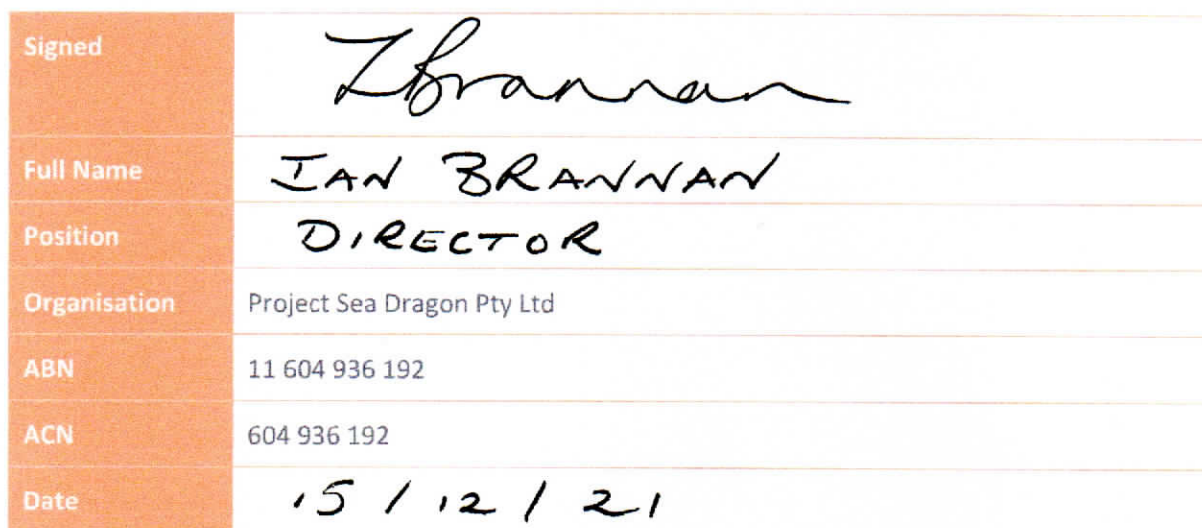 Signed IBrannan
Full Name IAN BRANNAN
Position DIRECTOR
Organisation Project Sea Dragon Pty Ltd
ABN 11 604 936 192
ACN 604 936 192
Date 15 / 12 / 21